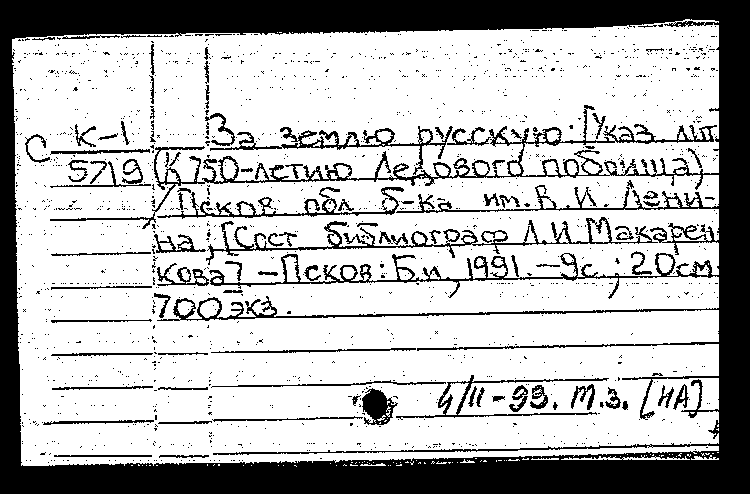 С К-1 За землю русскую: [Указ. лит.
5719 (К 750-летию Ледового побоища)
/Псков обл б-ка им. В. И. Лени-
на; [Сост библиограф Л. И. Макарен-
кова] -Псков: Б.и, 1991. -9с.; 20см
700 экз.
4/II-93. т.з. [НА]